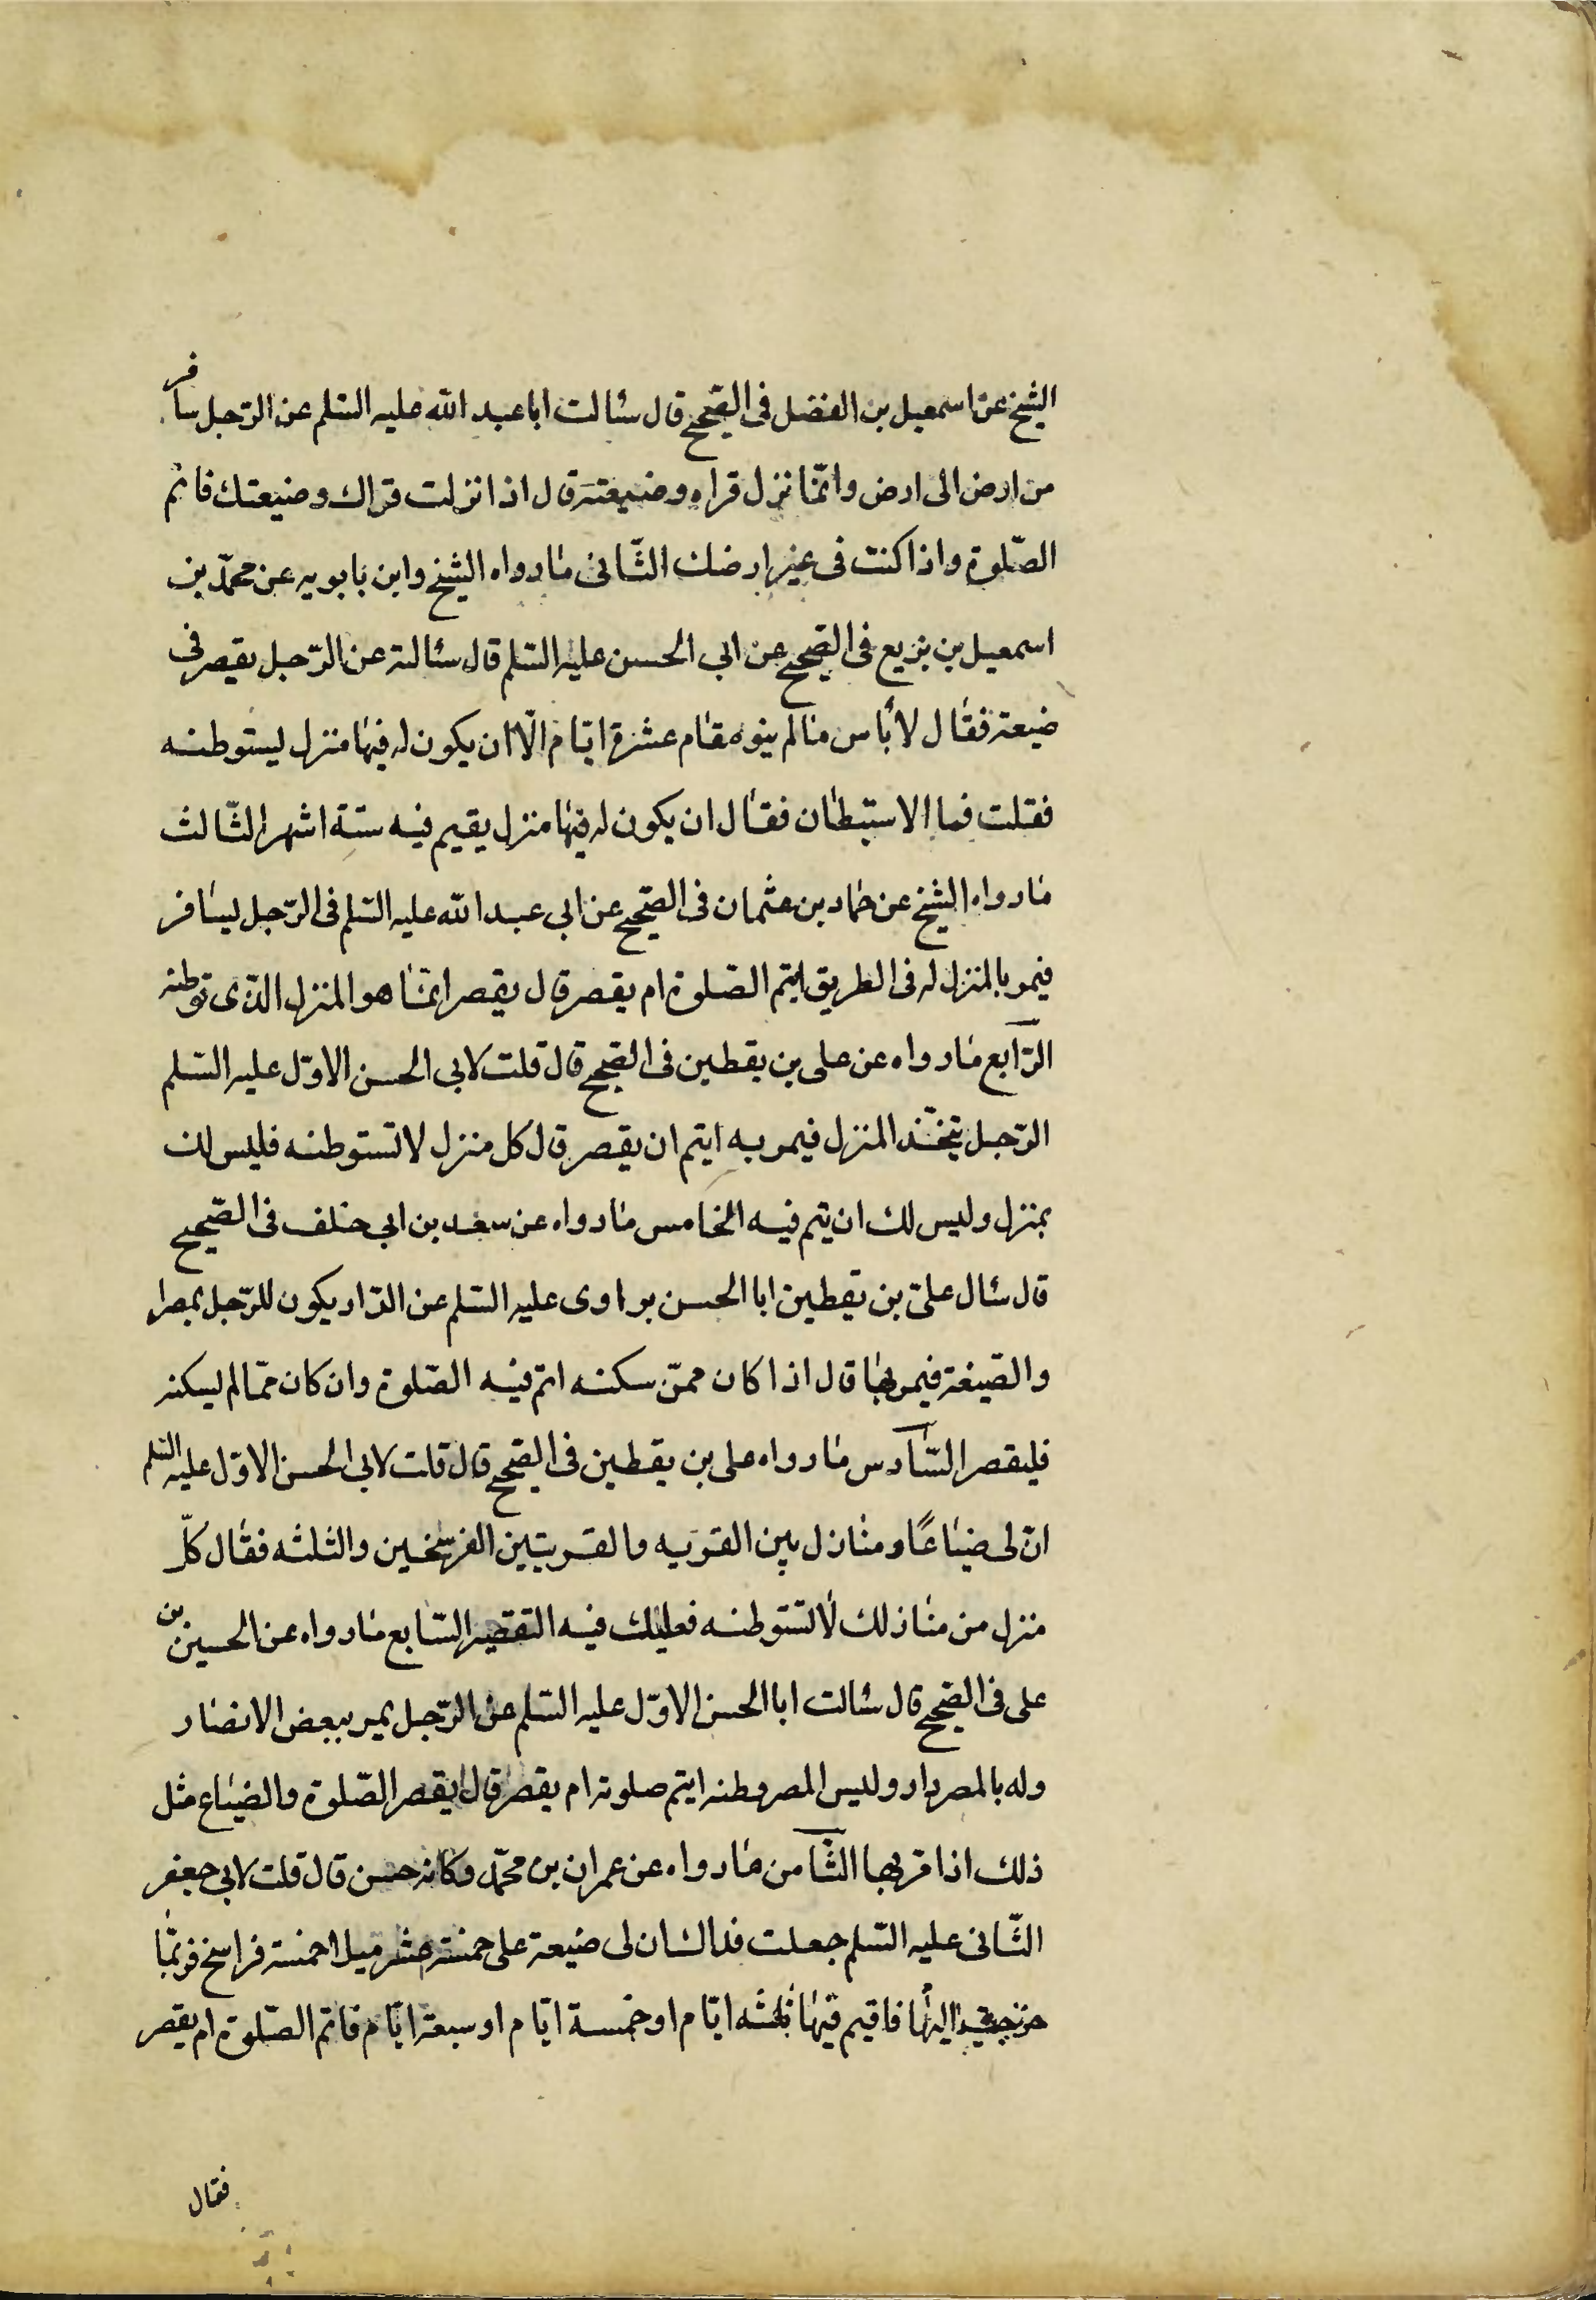 الشيخ عن اسمعيل بن الفضل فى الصحيح قال سئالت ابا عبد الله عليه السّلم عن الرّجل سافر
من ارض الى ارض وانّما نزل قراه وضيعته قال اذا نزلت قراك وضيعتك فاتم
الصّلوة واذا كنت فى غير ارضك الثّانى ما رواه الشيخ وابن بابويه عن محمّد بن
اسمعيل بن بزيع فى الصحيح عن ابى الحسن عليه السّلم قال سئالته عن الرّجل يقصر فى
ضيعة فقال لا بأس ما لم ينوه مقام عشرة ايّام الّا ان يكون له فيها منزل يستوطنه
فقلت فما الاستيطان فقال ان يكون له فيها منزل يقيم فيه ستة اشهر الثّالث
ما رواه الشيخ عن حماد بن عثمان فى الصّحيح عن ابى عبد الله عليه السّلم فى الرّجل يسافر
فيمر بالمنزل له فى الطريق ايتم الصّلوة ام يقصر قال يقصر انّما هو المنزل الذّى توطنه
الرّابع ما رواه عن على بن يقطين فى الصحيح قال قلت لابى الحسن الاوّل عليه السّلم
الرّجل يتخّذ المنزل فيمر به ايتم ان يقصر قال كل منزل لا تستوطنه فليس لك
بمنزل وليس لك ان يتم فيه الخامس ما رواه عن سعد بن ابى خلف فى الصّحيح
قال سئال علىّ بن يقطين ابا الحسن عليه السّلم عن الدّار يكون للرّجل بمصر
والصّيغة فيمر بها قال اذا كان ممّن سكنه اتمّ فيه الصّلوة وان كان ممّا لم يسكنه
فليقصر السّادس ما رواه على بن يقطين فى الصحيح قال قلت لابى الحسن الاوّل عليه السلم
انّ لى ضياعًا ومنازل بين القريه والقريتين الفرسخين والثلثه فقال كلّ
منزل من منازلك لا تستوطنه فعليك فيه التقصير السّابع ما رواه عن الحسين بن
على فى الصحيح قال سئالت ابا الحسن الاوّل عليه السّلم عن الرّجل يمر ببعض الامصار
وله بالمصر دار وليس المصر وطنه ايتم صلوته ام يقصر قال يقصر الصّلوة والضياع مثل
ذلك اذا مرّ بها الثّامن ما رواه عن عمران بن محمّد وكانه حسن قال قلت لابى جعفر
الثّانى عليه السّلم جعلت فداك ان لى ضيعة على خمسة عشر ميلا خمسة فراسخ فربّما
خرجت اليها فاقيم فيها ثلثه ايّام او خمسة ايّام او سبعة ايّام فاتم الصّلوة ام يقصر
فقال